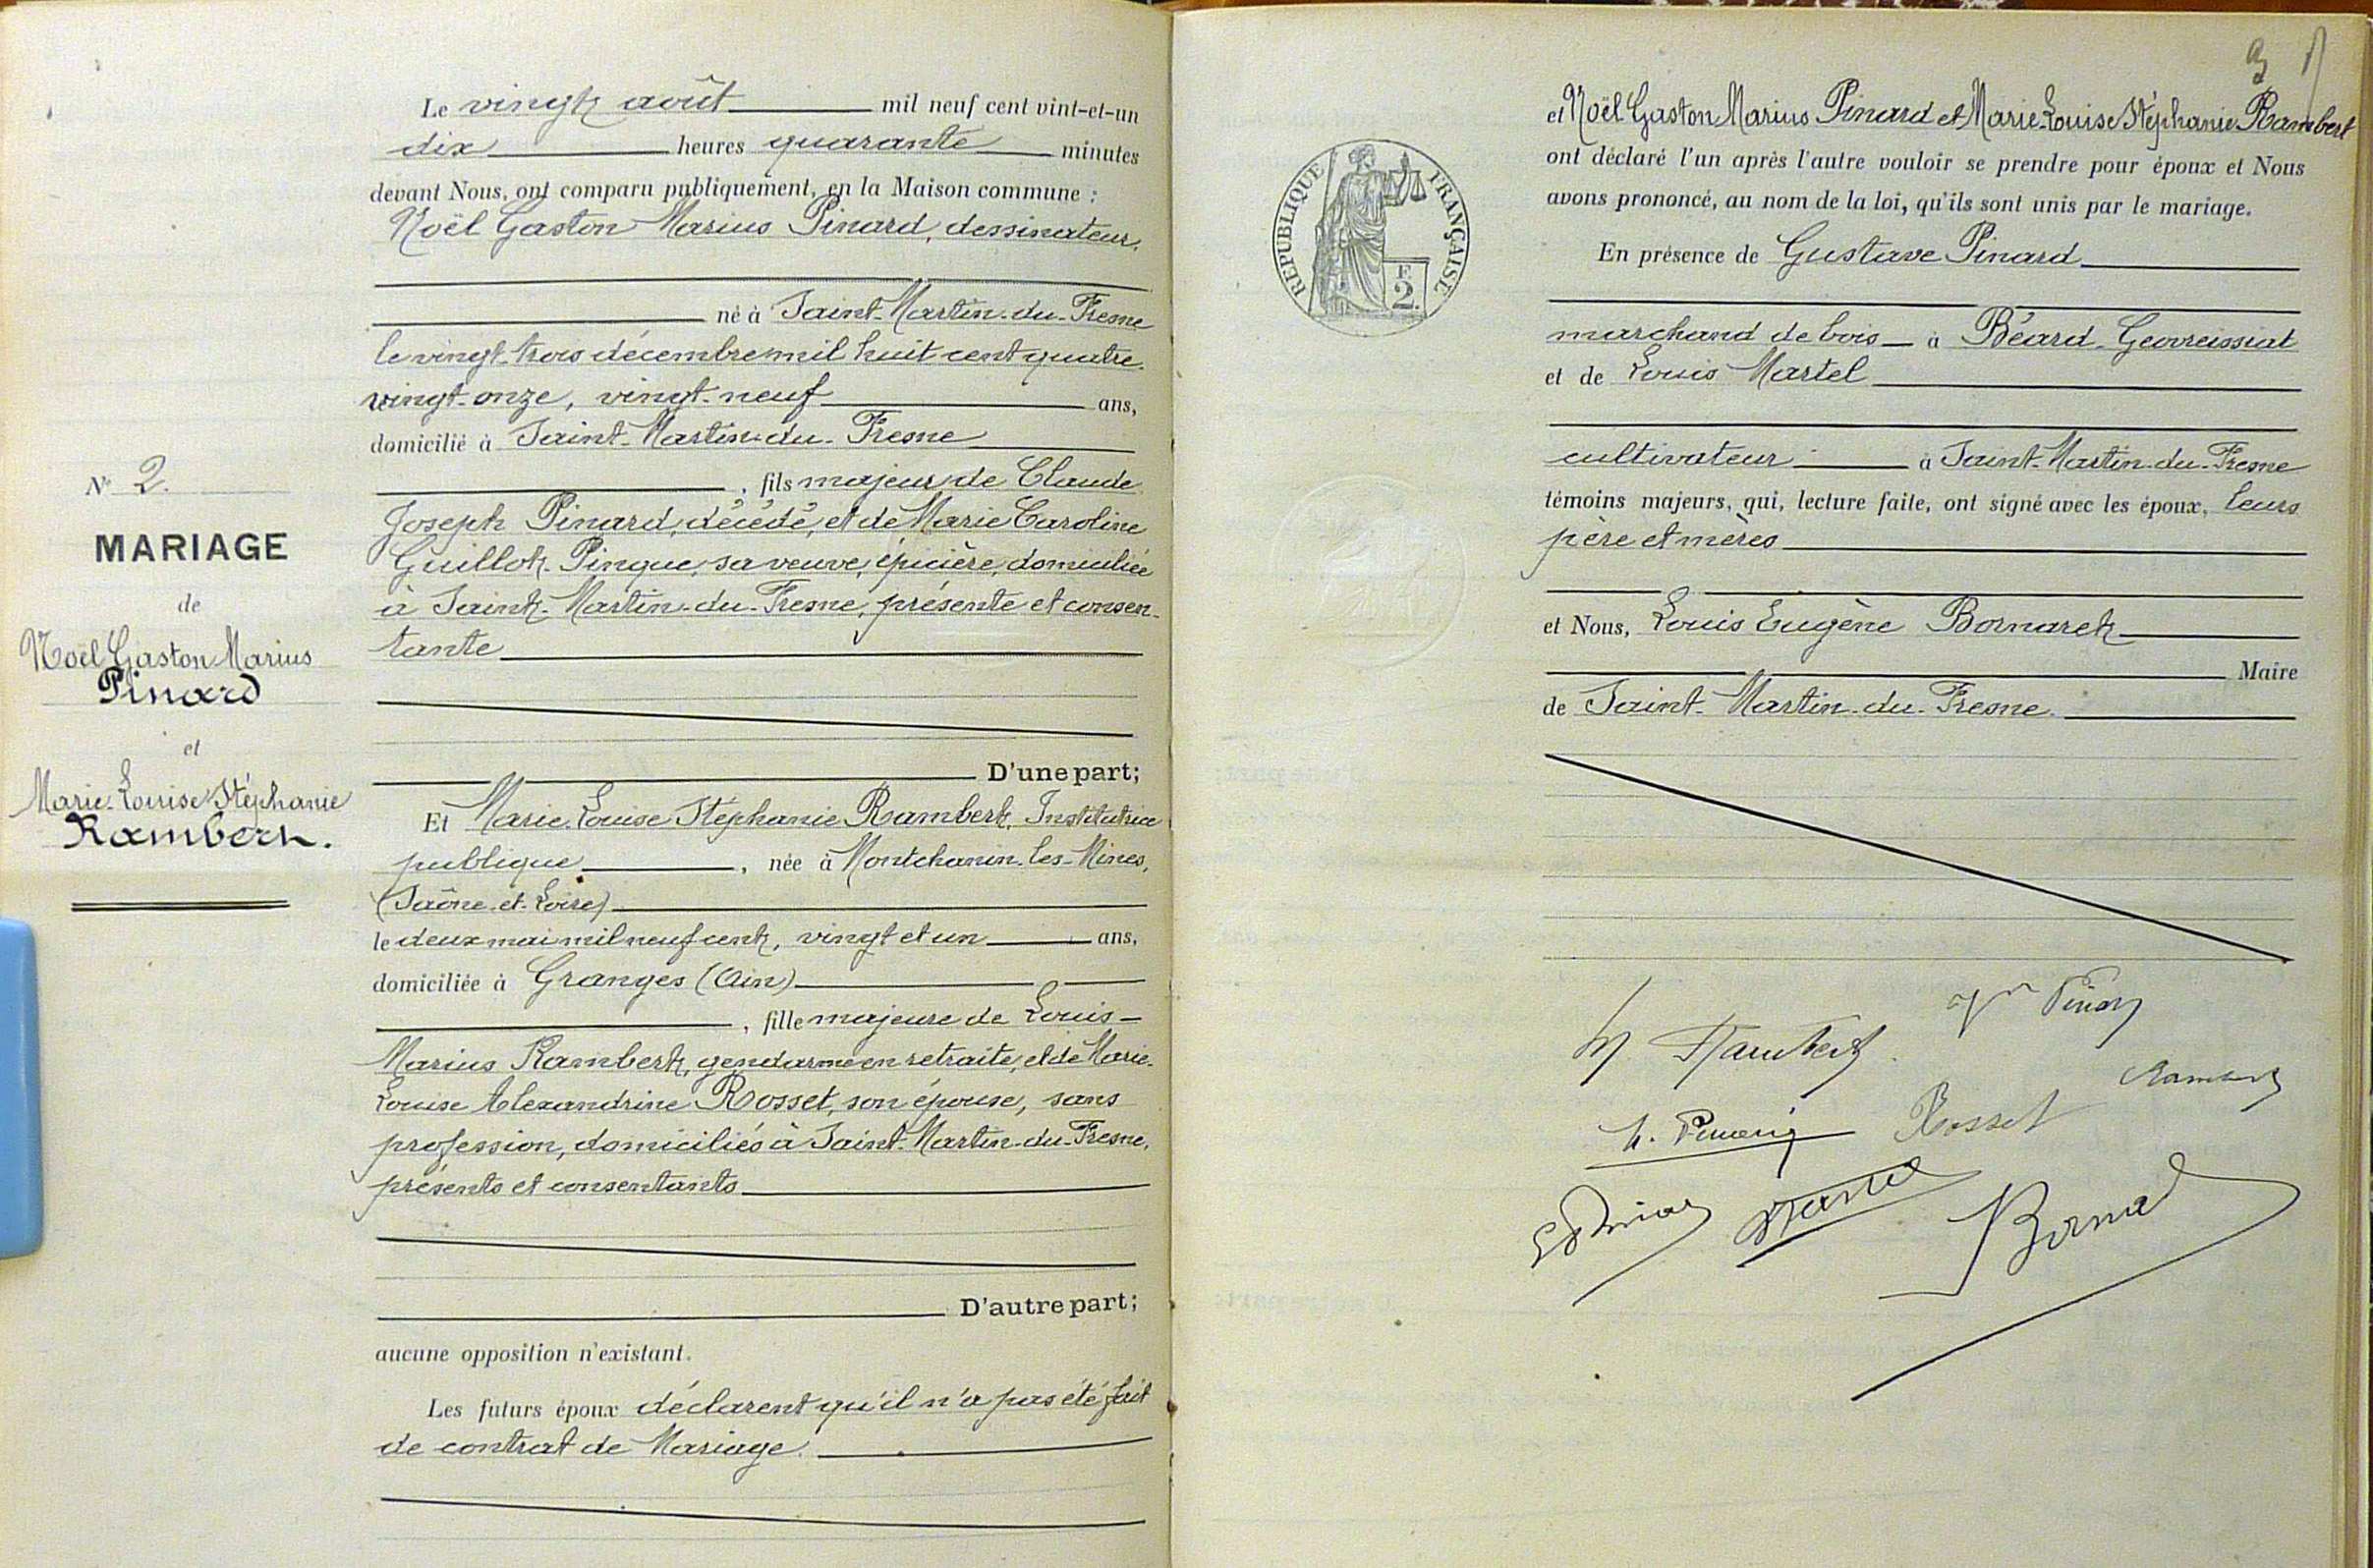 N° 2.
MARIAGE
de
Noël Gaston Marius
Pinard
et
Marie-Louise Stéphanie
Rambert.
Le vingt août mil neuf cent vint-et-un
dix heures quarante minutes
devant Nous, ont comparu publiquement, en la Maison commune :
Noël Gaston Marius Pinard, dessinateur,
né à Saint-Martin-du-Fresne
le vingt-trois décembre mil huit cent quatre-
vingt-onze, vingt-neuf ans,
domicilié à Saint-Martin-du-Fresne
, fils majeur de Claude
Joseph Pinard, décédé, et de Marie Caroline
Guillot-Pingue, sa veuve, épicière, domiciliée
à Saint-Martin-du-Fresne, présente et consen-
tante
D'une part;
Et Marie-Louise Stéphanie Rambert, Institutrice
publique, née à Montchanin-les-Mines,
(Saône-et-Loire)
le deux mai mil neuf cent, vingt et un ans,
domiciliée à Granges (Ain)
, fille majeure de Louis-
Marius Rambert, gendarme en retraite, et de Marie-
Louise Alexandrine Rosset, son épouse, sans
profession, domiciliés à Saint-Martin-du-Fresne,
présents et consentants
D'autre part;
aucune opposition n'existant.
Les futurs époux déclarent qu'il n'a pas été fait
de contrat de Mariage.
3
RÉPUBLIQUE FRANÇAISE
F.
2.
et Noël Gaston Marius Pinard et Marie-Louise Stéphanie Rambert
ont déclaré l'un après l'autre vouloir se prendre pour époux et Nous
avons prononcé, au nom de la loi, qu'ils sont unis par le mariage.
En présence de Gustave Pinard
marchand de bois à Béard-Geovreissiat
et de Louis Martel
cultivateur à Saint-Martin-du-Fresne
témoins majeurs, qui, lecture faite, ont signé avec les époux, leurs
père et mères
et Nous, Louis Eugène Bornarel
Maire
de Saint-Martin-du-Fresne.
Rambert
Rosset